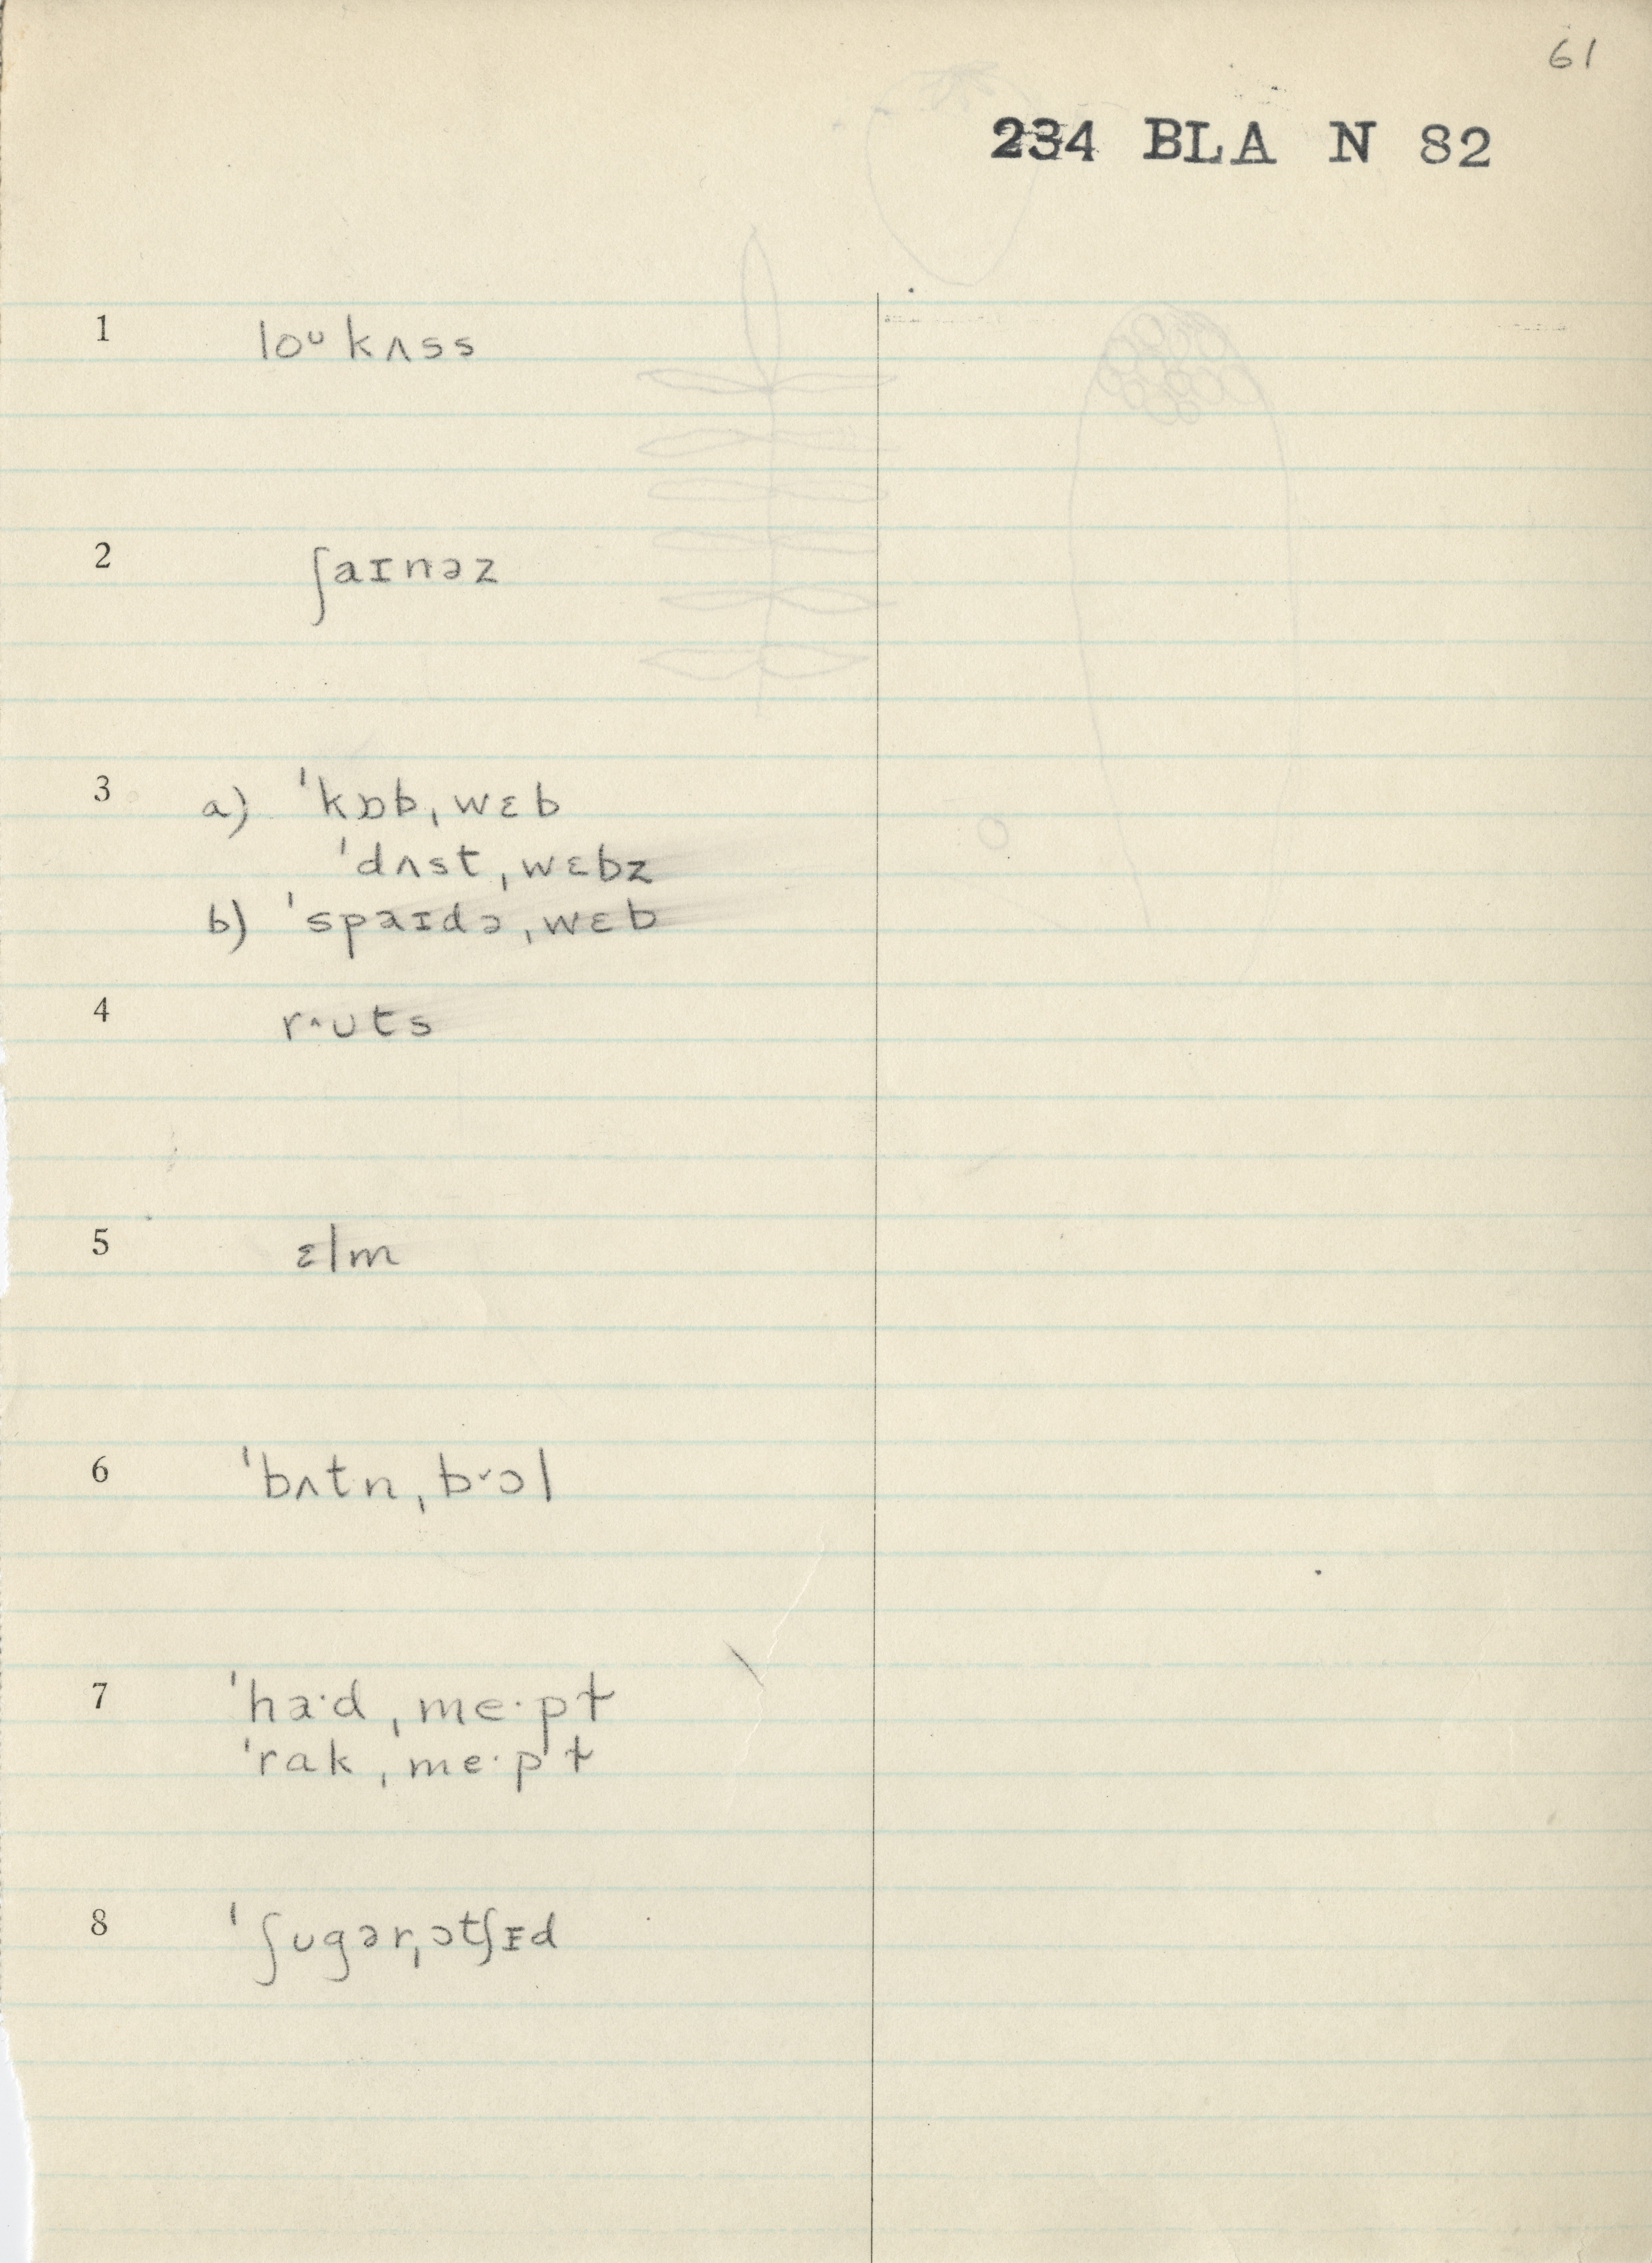 61
234 BLA N 82
1 loᴜkʌss
2 ʃaɪnəz
3 a) ˈkɒbˌwɛb
ˈdʌstˌwɛbz
b) ˈspaɪdəˌwɛb
4 r˄ʊts
5 ɛlm
6 ˈbʌtnˌb˅ɔl
7 ˈha·dˌme·pɫ
ˈrakˌme·pɫ
8 ˈʃʊgərˌɔtʃɪd